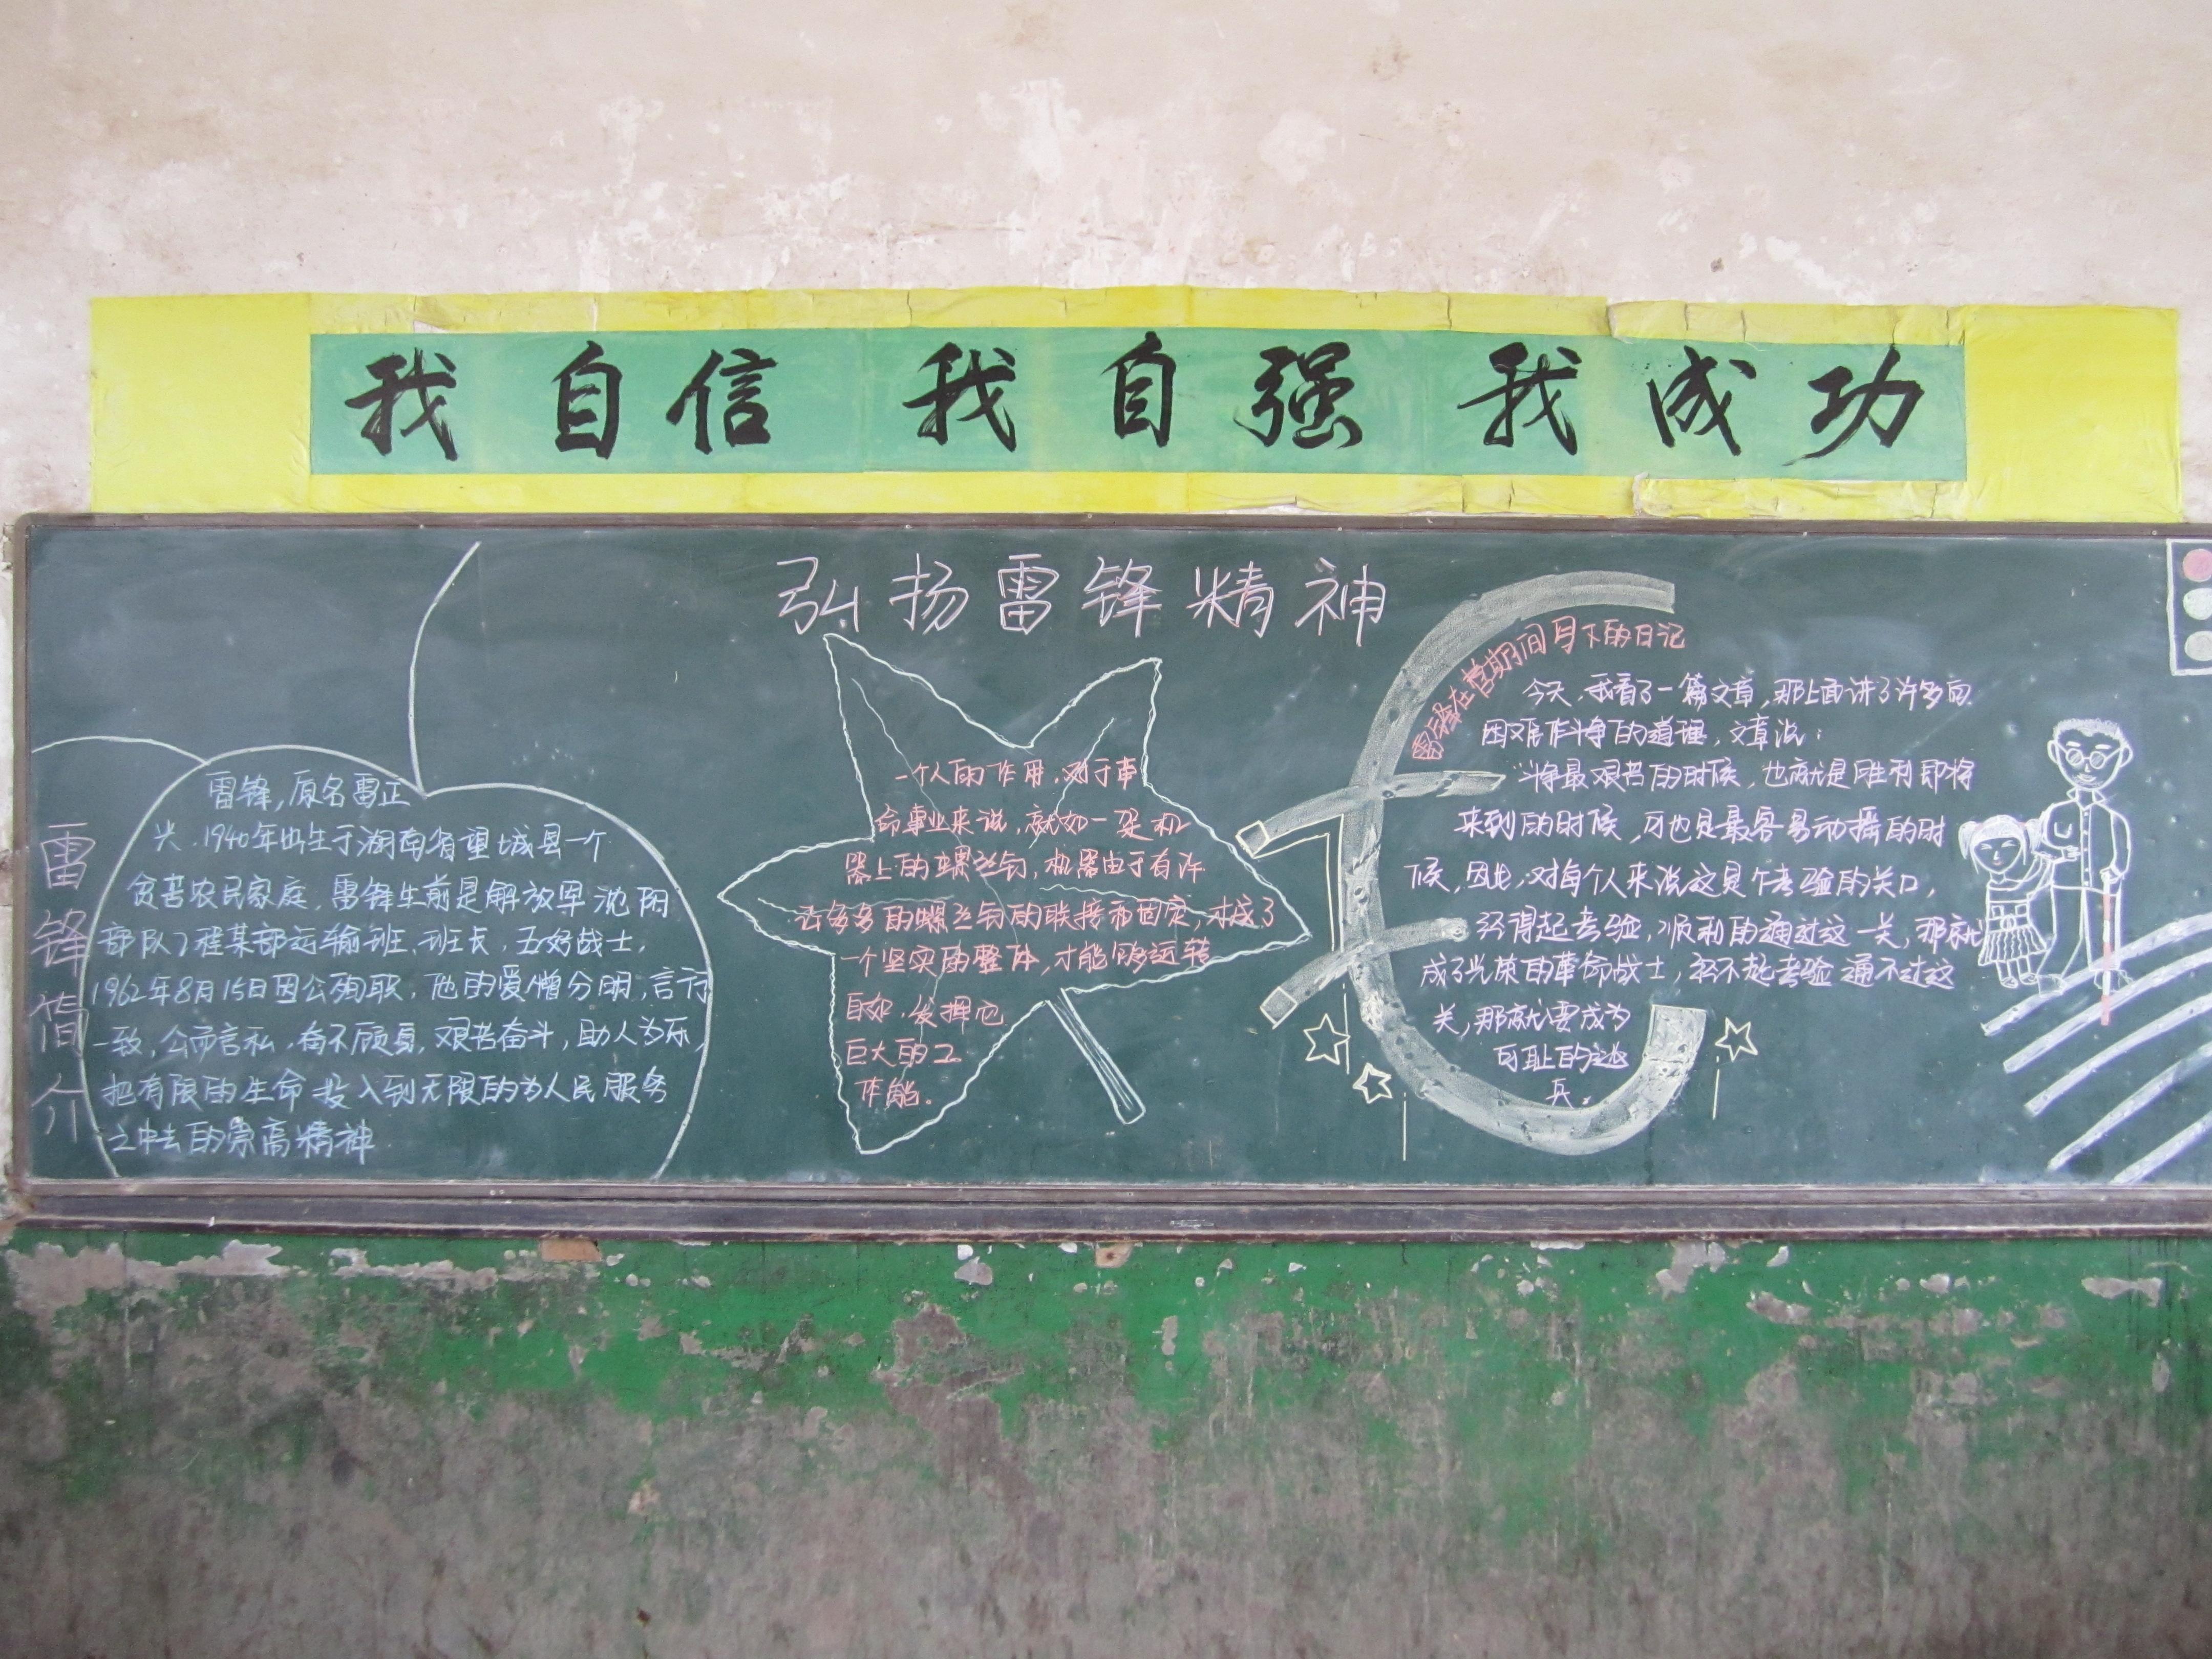 我自信 我自强 我成功
弘扬雷锋精神
雷锋简介
雷锋,原名雷正
兴.1940年出生于湖南省望城县一个
贫苦农民家庭,雷锋生前是解放军沈阳
部队工程某部运输班、班长,五好战士,
1962年8月15日因公殉职,他的爱憎分明,言行
一致,公而言私,奋不顾身,艰苦奋斗,助人为乐,
把有限的生命投入到无限的为人民服务
之中去的崇高精神
一个人的作用,对于革
命事业来说,就如一架机
器上的螺丝钉,机器由于有许
许多多的螺丝钉的联接和固定,才成了
一个坚实的整体,才能够运转
自如,发挥它
巨大的工
作能。
雷锋在曾期间写下的日记
今天,我看了一篇文章,那上面讲了许多向
困难作斗争的道理,文章说:
斗争最艰苦的时候,也就是胜利即将
来到的时候,可也是最容易动摇的时
候,因此,对每个人来说这是个考验的关口,
经得起考验,顺利的通过这一关,那就
成了光荣的革命战士,经不起考验通不过这
关,那就要成为
可耻的逃
兵。